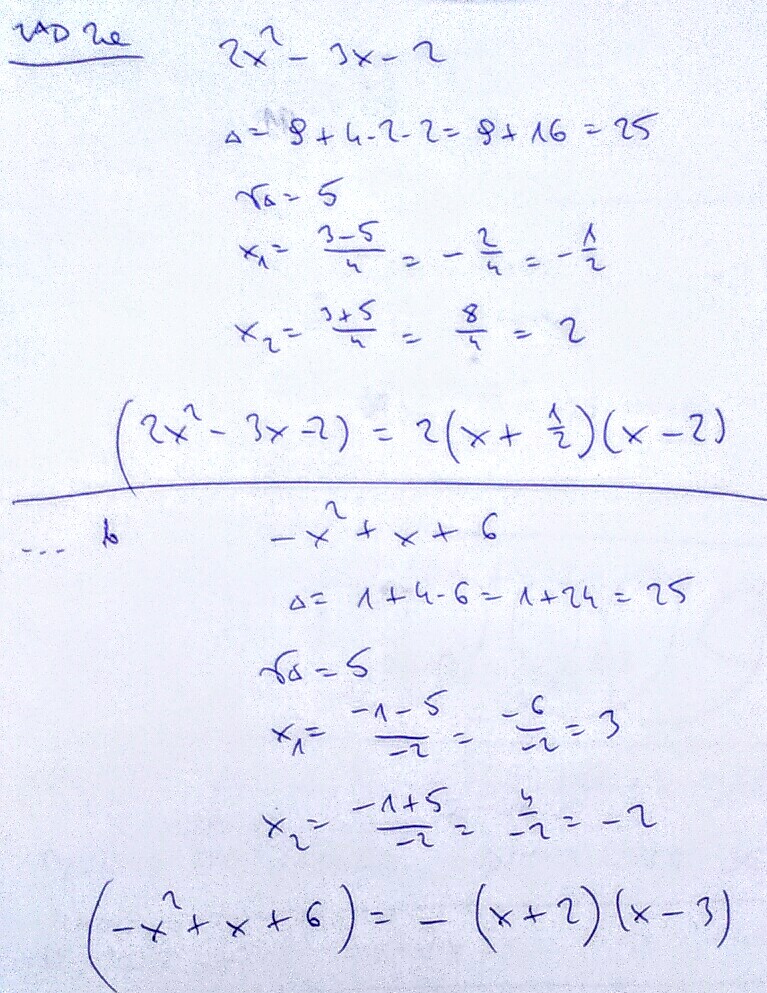 ZAD 2a
2x² - 3x - 2
Δ = 9 + 4·2·2 = 9 + 16 = 25
√Δ = 5
x₁ = (3-5)/4 = - 2/4 = - 1/2
x₂ = (3+5)/4 = 8/4 = 2
(2x² - 3x - 2) = 2(x + 1/2)(x - 2)
... b
-x² + x + 6
Δ = 1 + 4·6 = 1 + 24 = 25
√Δ = 5
x₁ = (-1-5)/-2 = -6/-2 = 3
x₂ = (-1+5)/-2 = 4/-2 = -2
(-x² + x + 6) = - (x + 2)(x - 3)